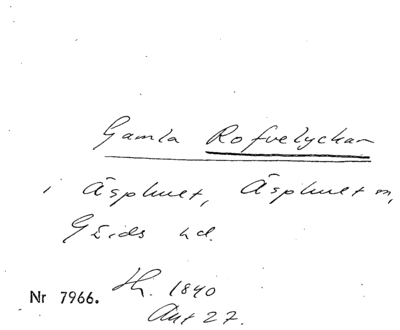 Gamla Rofvelyckan
i Äsphult, Äsphult sn,
Gärds hd.
Nr 7966. Hh. 1840
Akt 27.